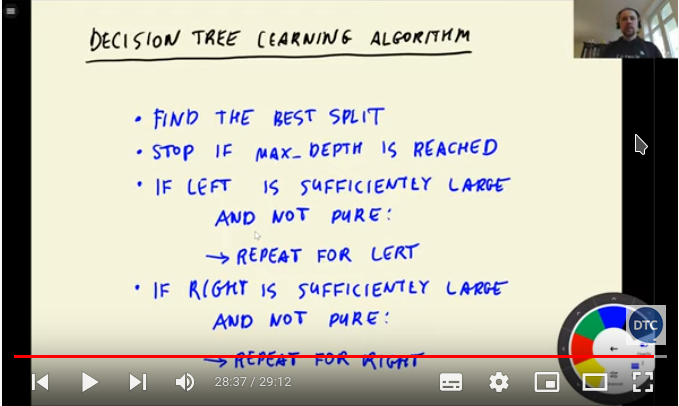 DECISION TREE LEARNING ALGORITHM
• FIND THE BEST SPLIT
• STOP IF MAX_DEPTH IS REACHED
• IF LEFT IS SUFFICIENTLY LARGE
AND NOT PURE:
→ REPEAT FOR LERT
• IF RIGHT IS SUFFICIENTLY LARGE
AND NOT PURE:
→ REPEAT FOR RIGHT
DTC
28:37 / 29:12